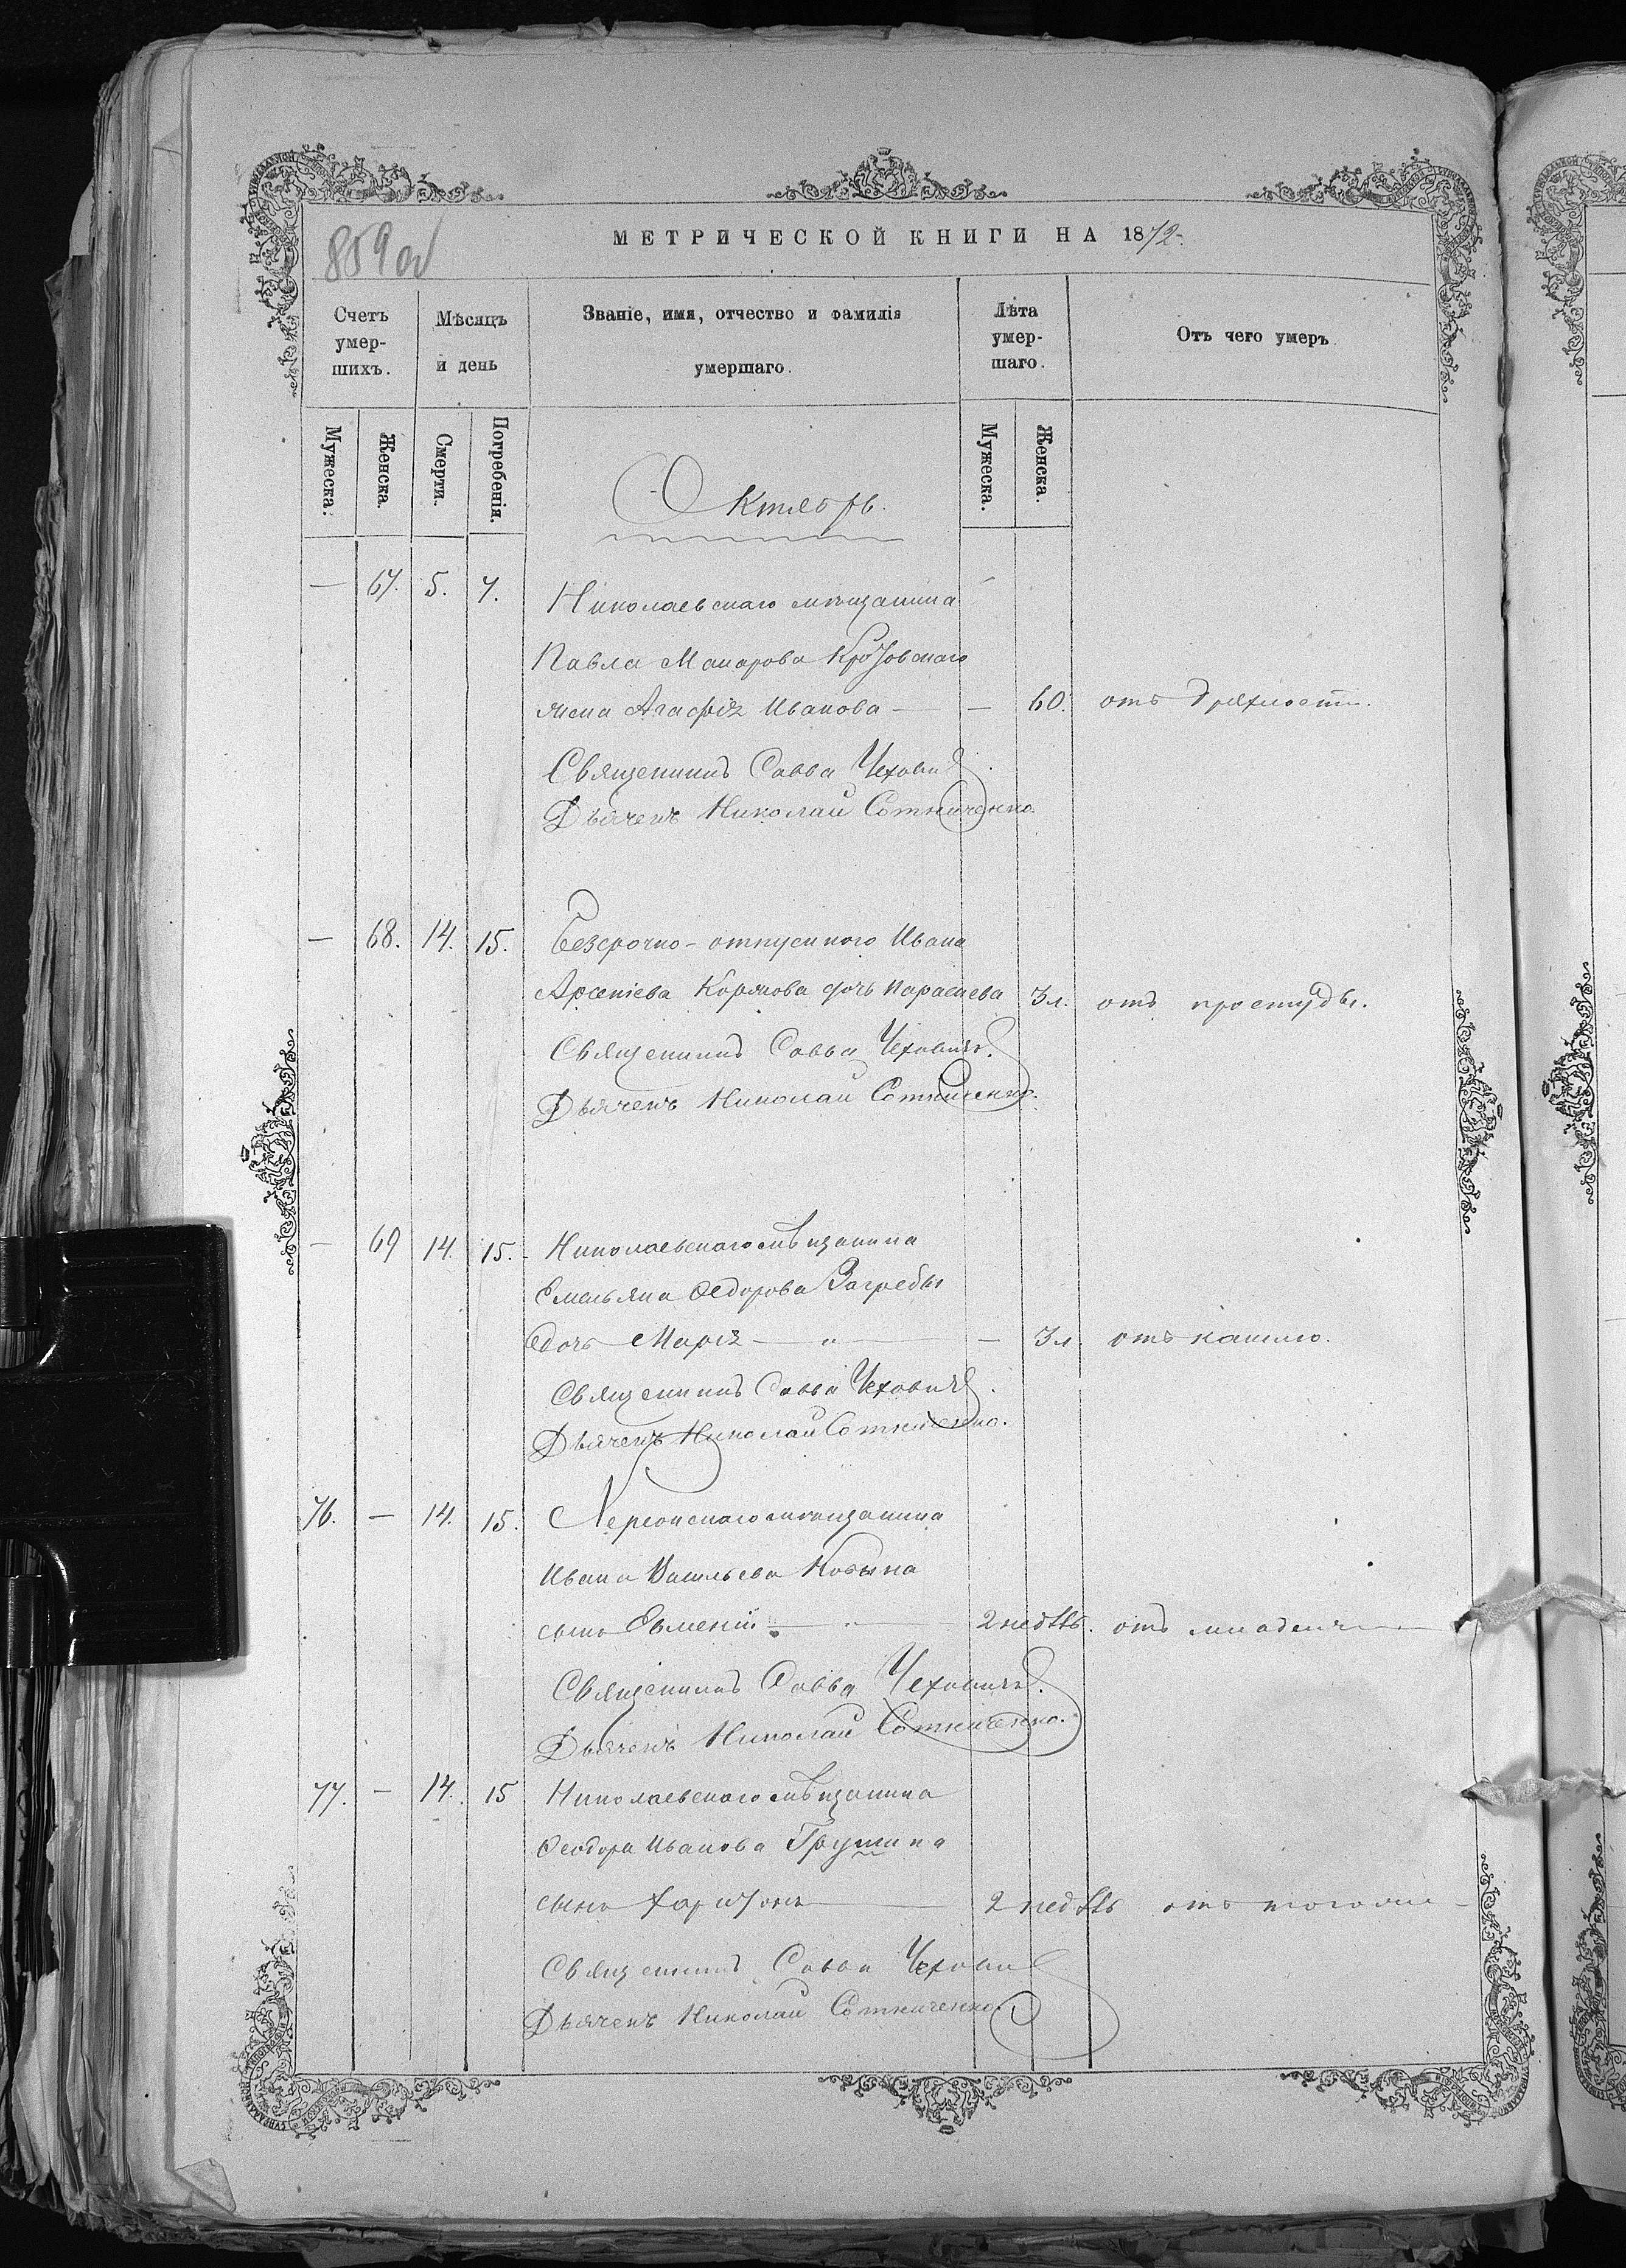 859 об
МЕТРИЧЕСКОЙ КНИГИ НА 1872.
Счетъ умер-шихъ. Мѣсяцъ и день Званіе, имя, отчество и фамилія умершаго. Лѣта умер-шаго. Отъ чего умеръ
Мужеска. Женска. Смерти. Погребенія. Мужеска. Женска.
Октябрь.
— 67. 5. 7. Николаевскаго мѣщанина
Павла Макарова Крозовскаго
жена Агафія Иванова — — 60. отъ дряхлости.
Священникъ Савва Чехович
Дьячекъ Николай Сотниченко.
— 68. 14. 15. Безсрочно-отпускного Ивана
Арсеніева Корякова дочь Параскева 3 л. отъ простуды.
Священникъ Савва Чеховичъ.
Дьячекъ Николай Сотниченко.
— 69 14. 15. Николаевскаго мѣщанина
Емельяна Ѳедорова Загребы
дочь Марія — " — — 3 л. отъ кашлю.
Священникъ Савва Чеховичъ.
Дьячекъ Николай Сотниченко.
76. — 14. 15. Херсонскаго мѣщанина
Ивана Васильева
сынъ Евменій — " — 2 недѣль. отъ младенч
Священникъ Савва Чеховичъ.
Дьячекъ Николай Сотниченко.
77. — 14. 15 Николаевскаго мѣщанина
Феодора Иванова Грушина
сынъ Харитонъ — 2 недѣль отъ того же —
Священникъ Савва Чехович
Дьячекъ Николай Сотниченко.